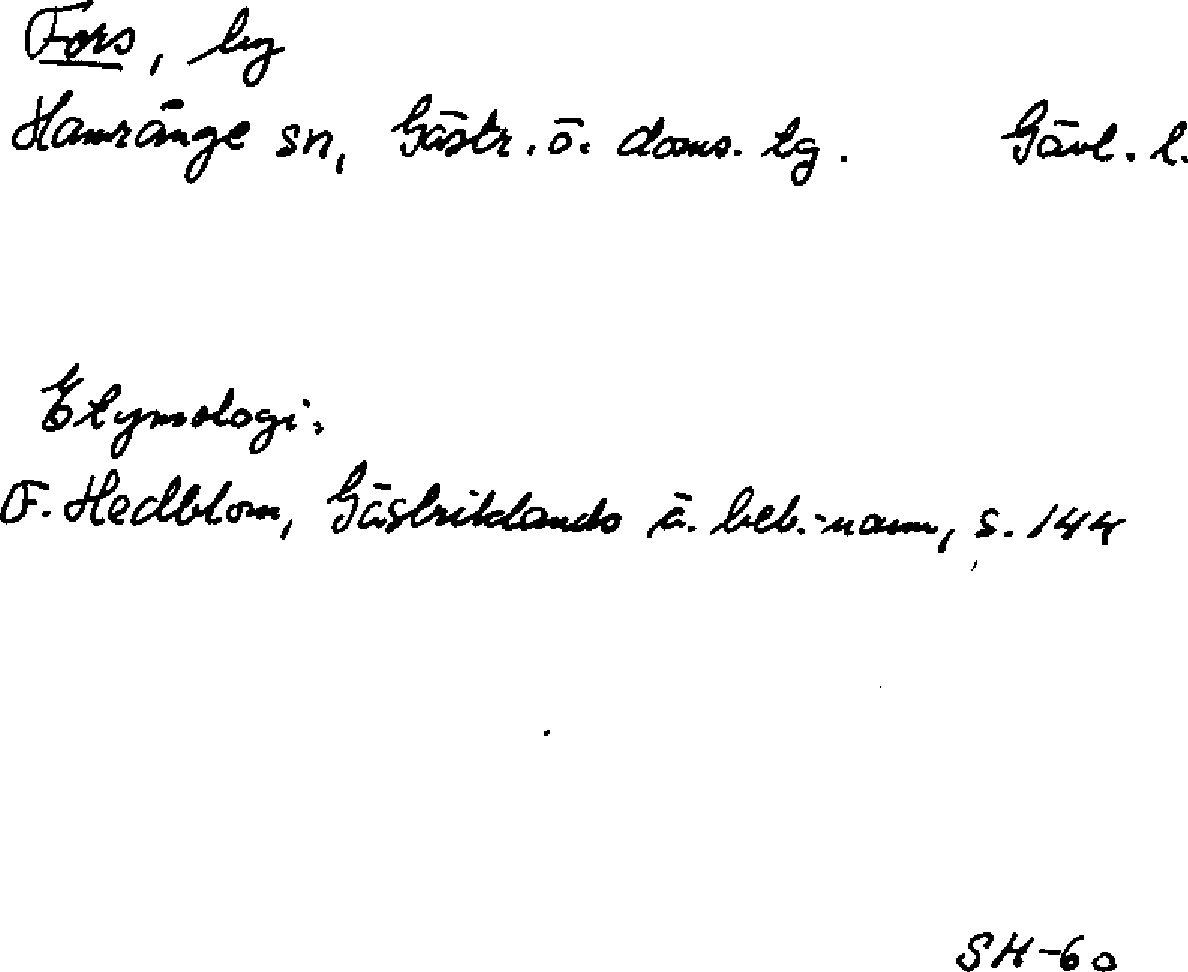 Fors, by
Hamränge sn, Gästr. ö. doms. tg. Gävl. l.
Etymologi:
F. Hedblom, Gästriklands ä. beb.-namn, s. 144
SH-60